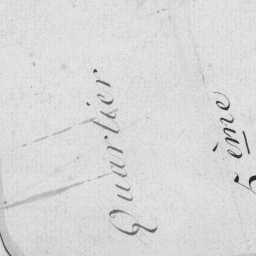 Quartier
5 ème